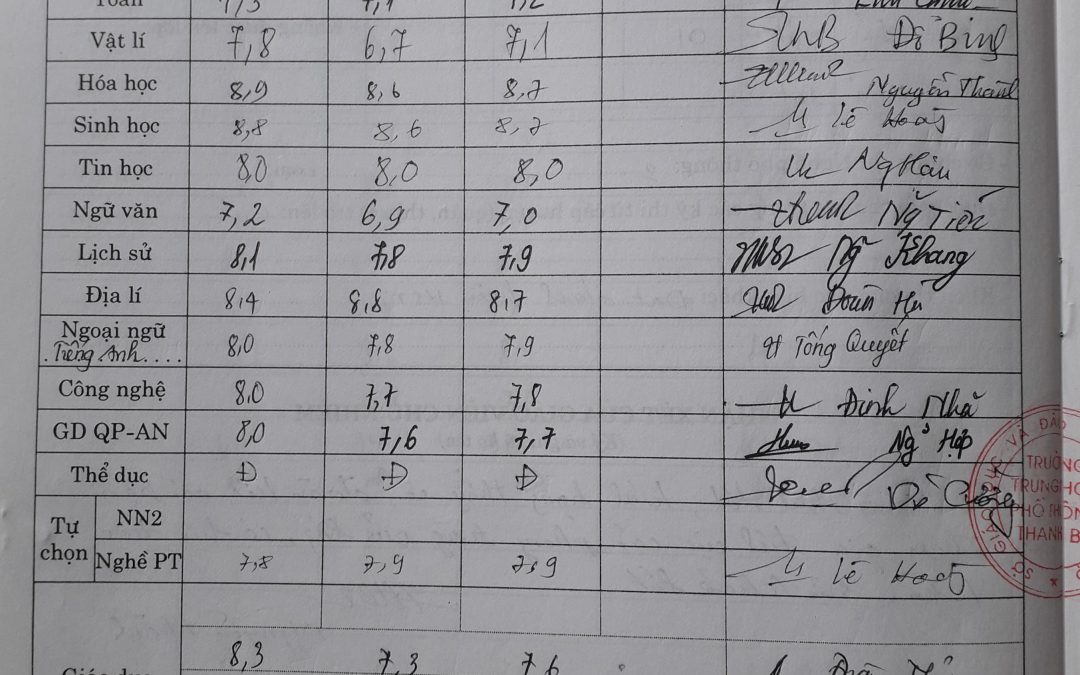 Toán 7,3 7,1 7,2
Vật lí 7,8 6,7 7,1 Đỗ Bình
Hóa học 8,9 8,6 8,7 Nguyễn Thành
Sinh học 8,8 8,6 8,7 Lê Hoàng
Tin học 8,0 8,0 8,0 Ng Hậu
Ngữ văn 7,2 6,9 7,0 Ng Tiến
Lịch sử 8,1 7,8 7,9 Ng Khang
Địa lí 8,4 8,8 8,7 Đoàn
Ngoại ngữ
Tiếng Anh 8,0 7,8 7,9 Tống Quyết
Công nghệ 8,0 7,7 7,8 Đinh Nhã
GD QP-AN 8,0 7,6 7,7 Ng Hợp
Thể dục Đ Đ Đ Cường
Tự chọn
NN2
Nghề PT 7,8 7,9 7,9 Lê Hoàng
8,3 7,3 7,6
Giáo dục
SỞ GIÁO DỤC VÀ ĐÀO
TRƯỜNG
TRUNG HỌ
PHỔ THÔN
THANH B